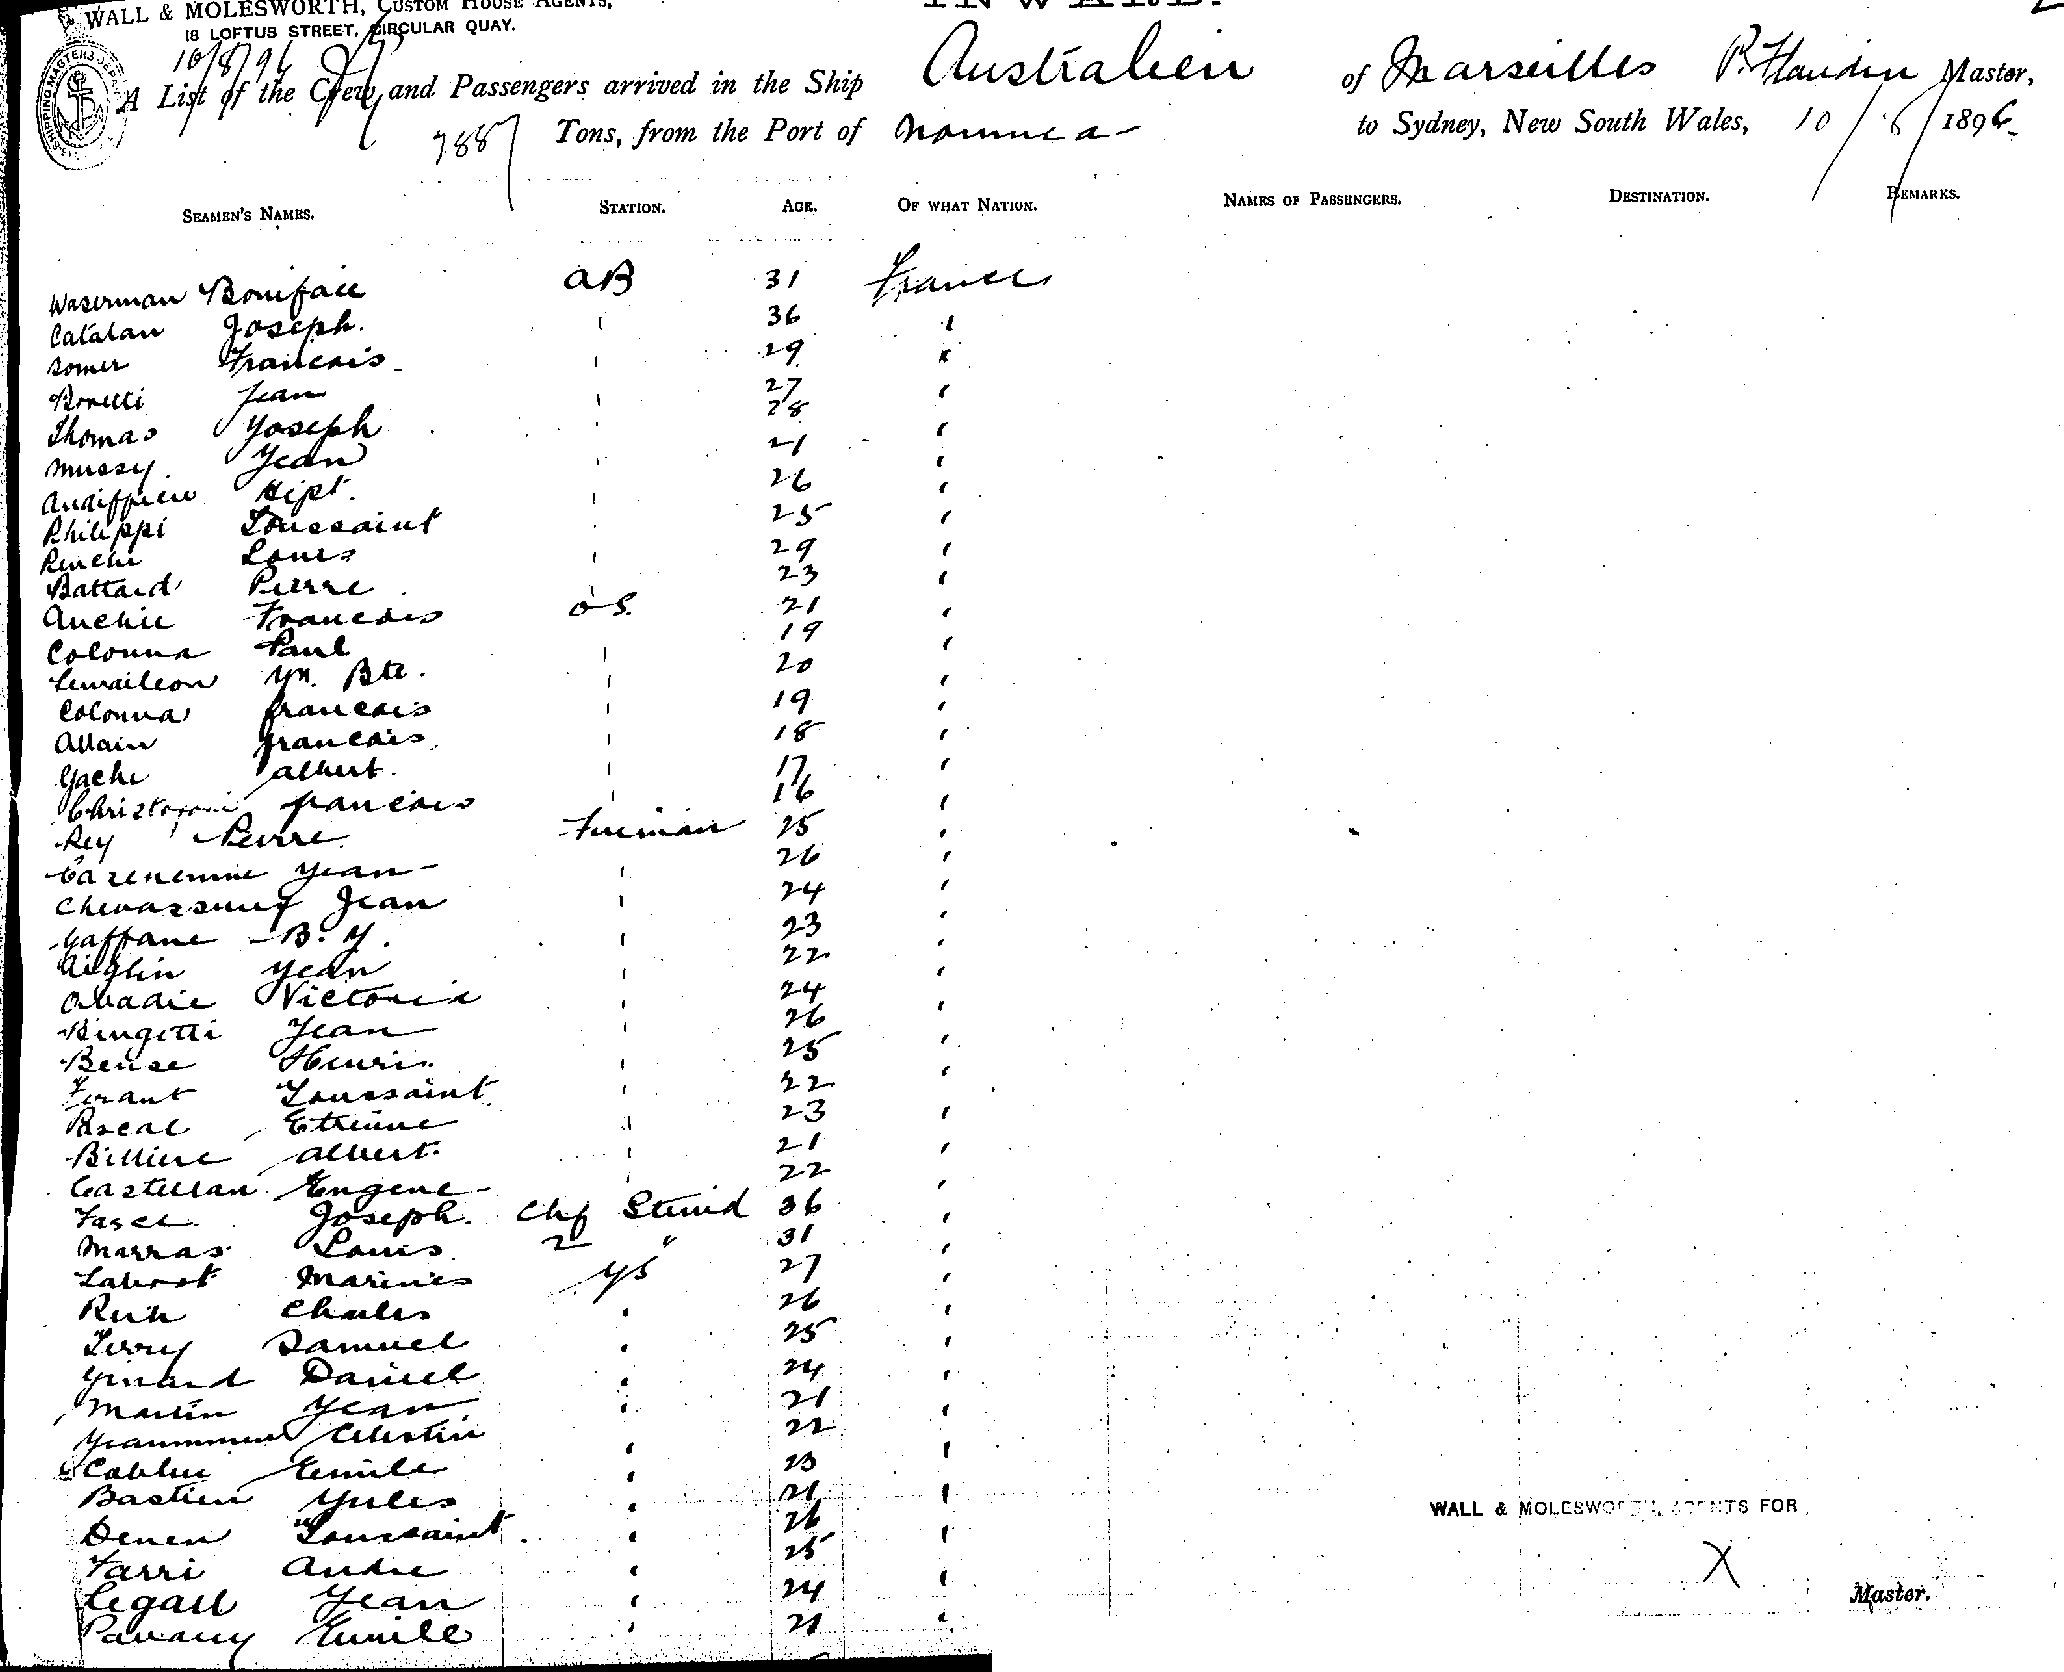 INWARD.
WALL & MOLESWORTH, CUSTOM HOUSE AGENTS,
18 LOFTUS STREET, CIRCULAR QUAY.
10/8/96
A List of the Crew and Passengers arrived in the Ship Australien of Marseilles P. Flandin Master,
Tons, from the Port of Noumea to Sydney, New South Wales, 10/8/1896
SEAMEN'S NAMES. STATION. AGE. OF WHAT NATION. NAMES OF PASSENGERS. DESTINATION. REMARKS.
Waserman Boniface AB 31 France
Catalan Joseph. 36
Somer Francois 29
Jean 27
Thomas Yoseph 28
Mussy Yean 21
Hipt. 26
Philippi Toussaint 25
Louis 29
Battard Pierre 23
Francois OS. 21
Colonna Paul 19
Yn. Bte. 20
Colonna francois 19
Allain francois 18
Gache albert. 17
francois 16
Rey Pierre Fireman 25
Yean 26
Jean 24
Gaffane B. Y. 23
Aiglin Yean 22
Abadie 24
Yean 26
Bense Henri 25
Toussaint 22
Pascal Etienne 23
Billiere albert. 21
Castellan Eugene 22
Joseph. Chf 36
Marras Louis 2 " 31
Marines 27
Charles 26
Terry Samuel 25
Daniel 24
Martin Yean 21
Celestin 22
Emile 23
Bastien Yules 21
Denen Toussaint 26
Farri Andre 25
Legall Yean 24
Emile 21
WALL & MOLESWORTH, AGENTS FOR
X
Master.